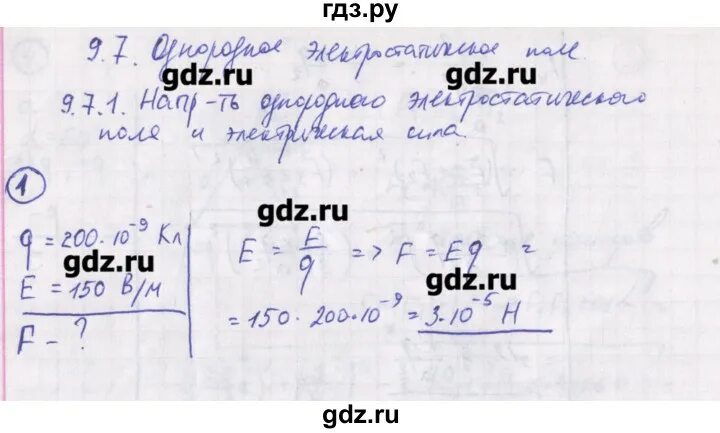 гдз.ру
9.7. Однородное электростатическое поле.
gdz.ru
9.7.1. Напр-ть однородного электростатического
поля и электрическая сила.
1
gdz.ru
q = 200·10⁻⁹ Кл
gdz.ru
E = 150 В/м
F - ?
E = E/q => F = Eq =
gdz.ru
= 150 · 200·10⁻⁹ = 3·10⁻⁵ Н
gdz.ru